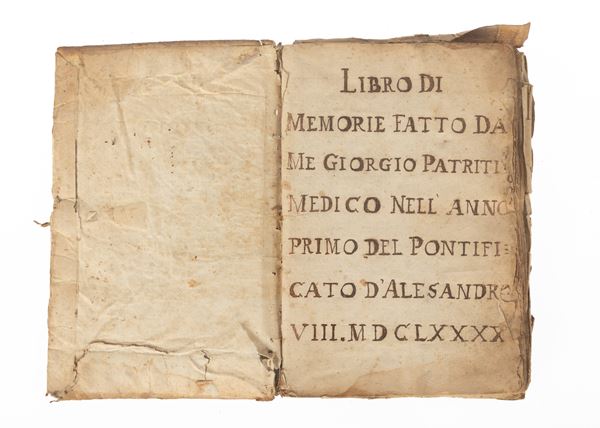 LIBRO DI
MEMORIE FATTO DA
ME GIORGIO PATRITI
MEDICO NELL' ANNO
PRIMO DEL PONTIFI=
CATO D'ALESANDRO
VIII. MDCLXXXX